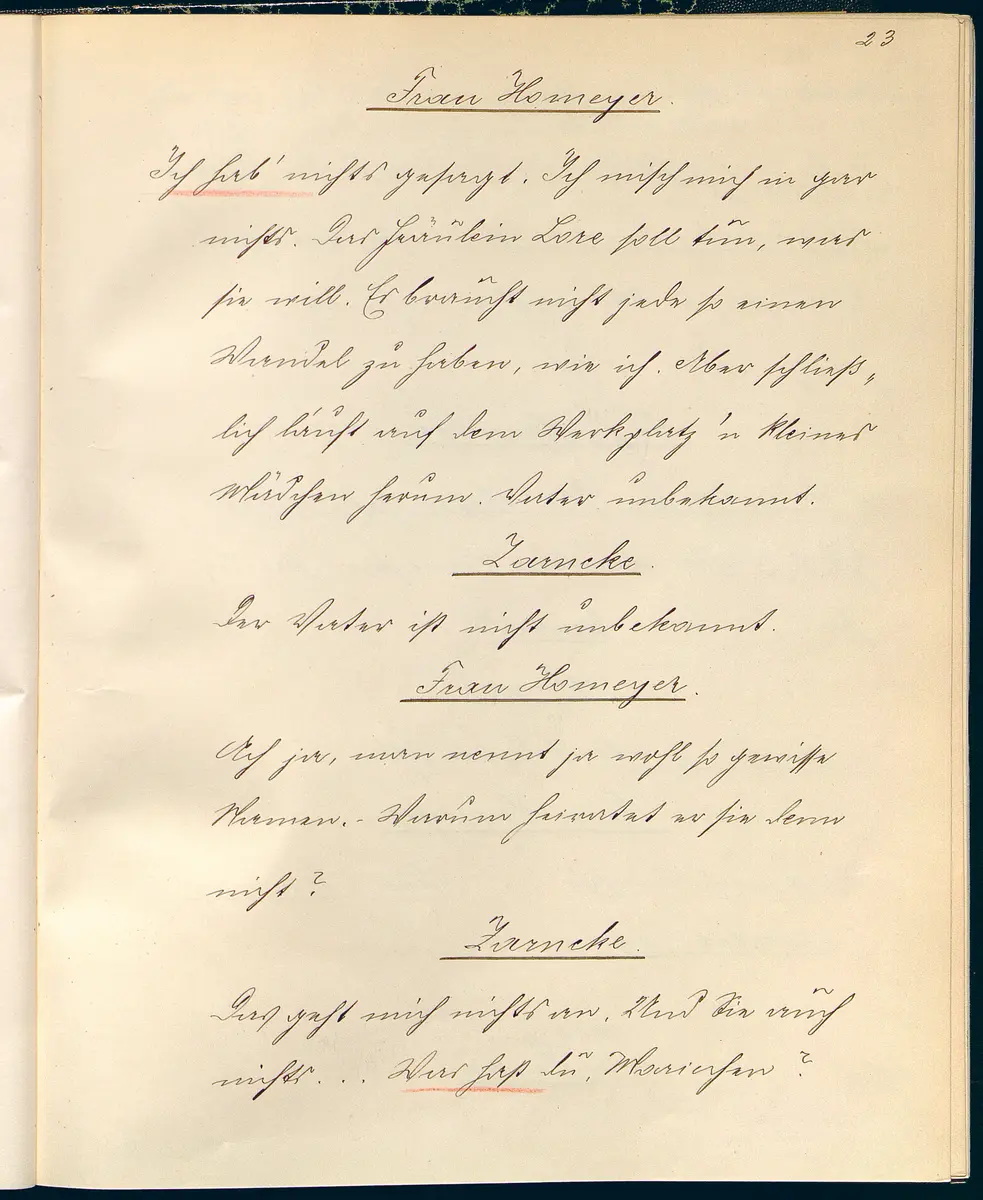 23
Frau Homeyer.
Ich hab' nichts gesagt. Ich misch mich in gar
nichts. Das Fräulein Lore soll tun, was
sie will. Es braucht nicht jede so einen
Wandel zu haben, wie ich. Aber schließ„
lich läuft auf dem Werkplatz 'n kleines
Mädchen herum. Vater unbekannt.
Zarncke.
Der Vater ist nicht unbekannt.
Frau Homeyer.
Ach ja, man nennt ja wohl so gewisse
Namen. - Warum heiratet er sie denn
nicht?
Zarncke.
Das geht mich nichts an. Und Sie auch
nichts... Was hast du, Mariechen?